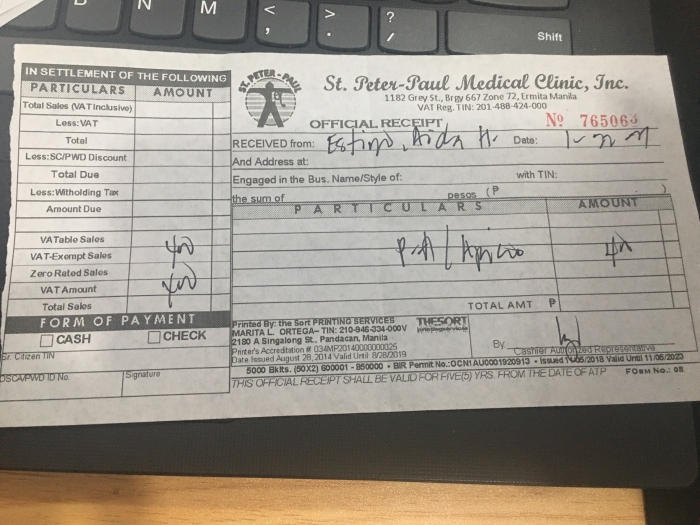 N M < , > . ? / Shift
IN SETTLEMENT OF THE FOLLOWING
PARTICULARS AMOUNT
Total Sales (VAT Inclusive)
Less:VAT
Total
Less:SC/PWD Discount
Total Due
Less:Witholding Tax
Amount Due
VATable Sales
VAT-Exempt Sales 400
Zero Rated Sales
VAT Amount 400
Total Sales
FORM OF PAYMENT
CASH CHECK
Sr. Citizen TIN
OSCA/PWD ID No. Signature
ST. PETER-PAUL
St. Peter-Paul Medical Clinic, Inc.
1182 Grey St., Brgy 667 Zone 72, Ermita Manila
VAT Reg. TIN: 201-488-424-000
OFFICIAL RECEIPT
RECEIVED from: Aida H. Date:
And Address at:
Engaged in the Bus. Name/Style of: with TIN:
the sum of pesos (P )
PARTICULARS AMOUNT
TOTAL AMT P
Printed By: the Sort PRINTING SERVICES
MARITA L. ORTEGA- TIN: 210-946-334-000V
2180 A Singalong St., Pandacan, Manila
Printer's Accreditation # 034MP20140000000025
Date Issued August 28, 2014 Valid Until 8/28/2019
THESORT
By
Cashier Authorized Representative
5000 Bklts. (50X2) 600001 - 850000 - BIR Permit No.:OCN1AU0001920913 - Issued 11/06/2018 Valid Until 11/05/2023
THIS OFFICIAL RECEIPT SHALL BE VALID FOR FIVE(5) YRS. FROM THE DATE OF ATP FORM No.: OR